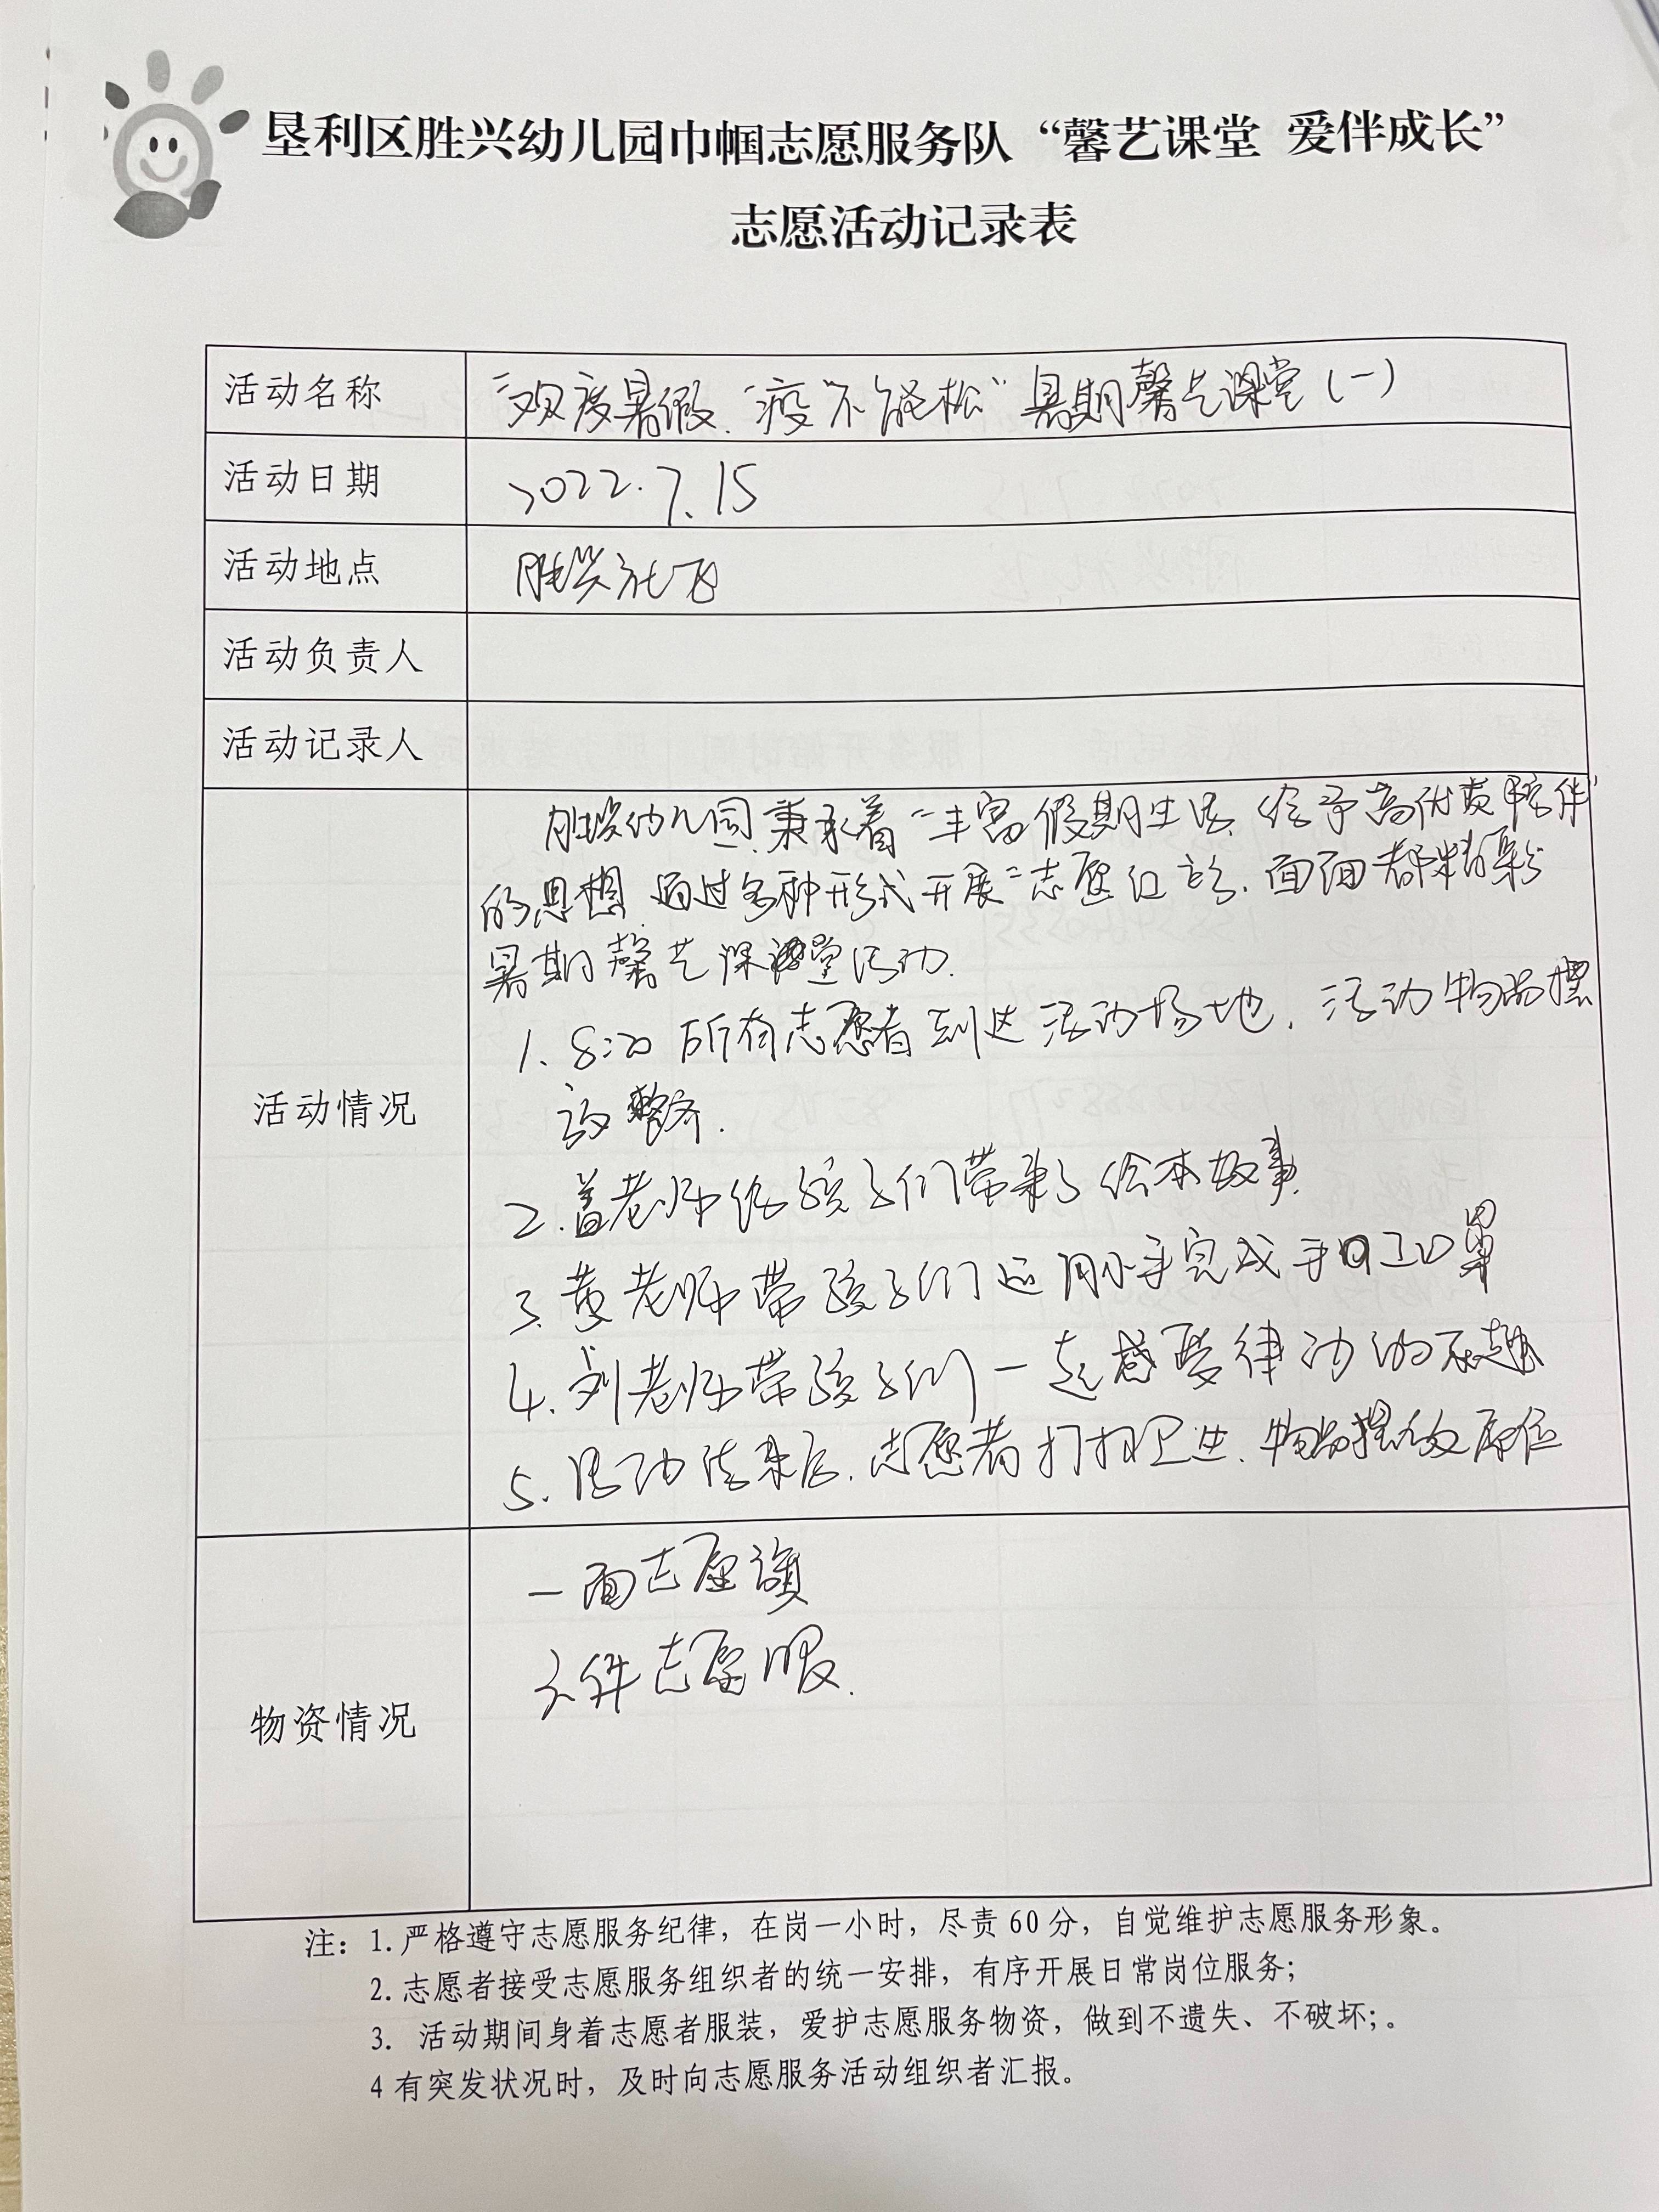 垦利区胜兴幼儿园巾帼志愿服务队“馨艺课堂 爱伴成长”
志愿活动记录表
活动名称
“欢度暑假、“疫”不能松”暑期馨艺课堂(一)
活动日期
2022.7.15
活动地点
胜兴社区
活动负责人
活动记录人
活动情况
胜兴幼儿园秉承着“丰富假期生活、给予高优质陪伴”
的思想、通过多种形式开展“志愿红 面面都精彩
暑期馨艺课堂活动.
1. 8:20 所有志愿者到达活动场地,活动物品摆
放整齐.
2. 盖老师给孩子们带来了绘本故事.
3. 黄老师带孩子们运用小手完成手工口罩
4. 刘老师带孩子们一起感受律动的乐趣
5. 活动结束后,志愿者打扫卫生、物品摆放原位
物资情况
一面志愿旗
六件志愿服.
注：1.严格遵守志愿服务纪律，在岗一小时，尽责60分，自觉维护志愿服务形象。
2.志愿者接受志愿服务组织者的统一安排，有序开展日常岗位服务；
3. 活动期间身着志愿者服装，爱护志愿服务物资，做到不遗失、不破坏；。
4 有突发状况时，及时向志愿服务活动组织者汇报。